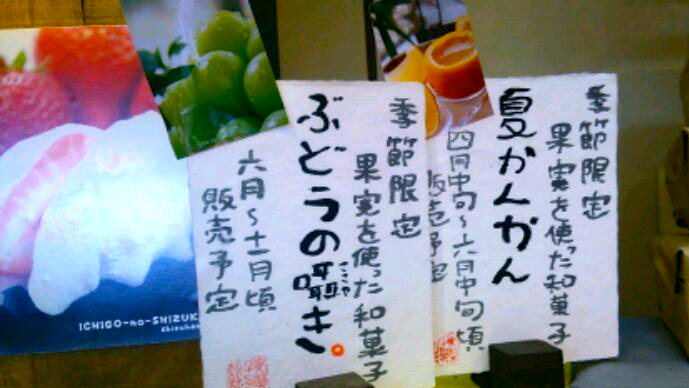 季節限定
果実を使った和菓子
夏かんかん
四月中旬〜六月中旬頃
販売予定
季節限定
果実を使った和菓子
ぶどうの囁き。
ささや
六月〜十一月頃
販売予定
ICHIGO-no-SHIZUK